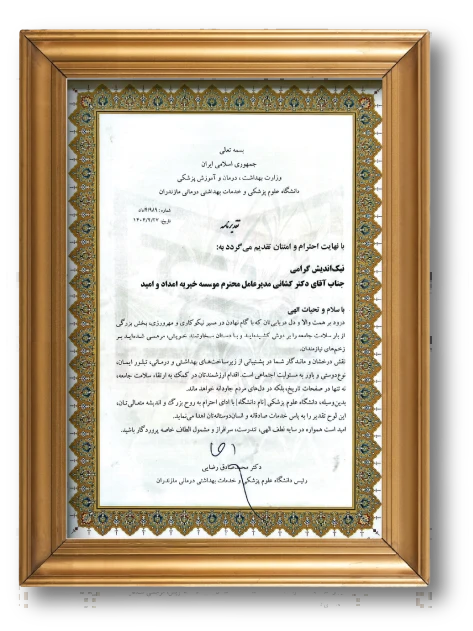 بسمه تعالی
جمهوری اسلامی ایران
وزارت بهداشت، درمان و آموزش پزشکی
دانشگاه علوم پزشکی و خدمات بهداشتی درمانی مازندران
شماره:
تاریخ: ۱۴۰۳/۹/۲۷
تقدیرنامه
با نهایت احترام و امتنان تقدیم می‌گردد به:
نیک‌اندیش گرامی
جناب آقای دکتر کشانی مدیرعامل محترم موسسه خیریه امداد و امید
با سلام و تحیات الهی
درود بر همت والا و دل دریایی‌تان که با گام نهادن در مسیر نیکوکاری و مهرورزی، بخش بزرگی
از بار سلامت جامعه را بر دوش کشیده‌اید و با دستان سخاوتمند خویش، مرهمی شده‌اید بر
زخم‌های نیازمندان.
نقش درخشان و ماندگار شما در پشتیبانی از زیرساخت‌های بهداشتی و درمانی، تبلور ایمان،
نوع‌دوستی و باور به مسئولیت اجتماعی است. اقدام ارزشمندتان در کمک به ارتقاء سلامت جامعه،
نه تنها در صفحات تاریخ، بلکه در دل‌های مردم جاودانه خواهد ماند.
بدین‌وسیله، دانشگاه علوم پزشکی [نام دانشگاه] با ادای احترام به روح بزرگ و اندیشه متعالی‌تان،
این لوح تقدیر را به پاس خدمات صادقانه و انسان‌دوستانه‌تان اهدا می‌نماید.
امید است همواره در سایه لطف الهی، تندرست، سرافراز و مشمول الطاف خاصه پروردگار باشید.
دکتر محمدصادق رضایی
رئیس دانشگاه علوم پزشکی و خدمات بهداشتی درمانی مازندران